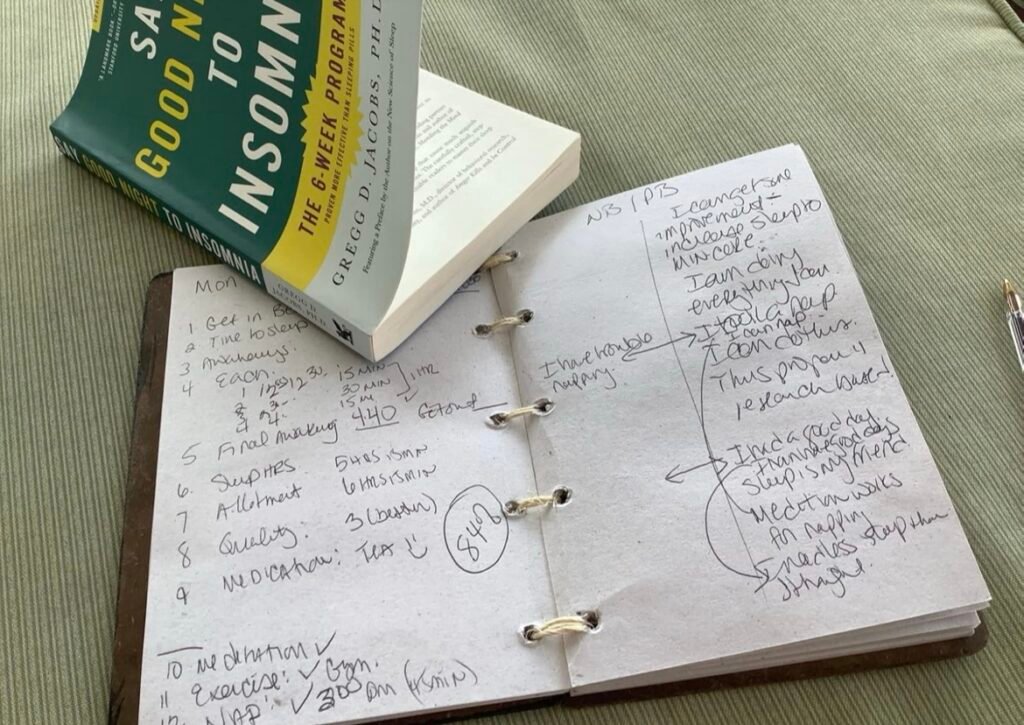 "A LANDMARK BOOK." —
STANFORD UNIVERSITY
SAY
GOOD NI
TO
INSOMN
THE 6-WEEK PROGRAM
PROVEN MORE EFFECTIVE THAN SLEEPING PILLS
GREGG D. JACOBS, PH.D.
Featuring a Preface by the Author on the New Science of Sleep
SAY GOOD NIGHT TO INSOMNIA
GREGG D.
JACOBS, PH.D.
Mon
1 Get in Be
2 Time to sleep
3 Awakenings:
4 Each:
1 12 30. 15 MIN
2 30 MIN
3 15 m
4
] 1 HR
5 Final Awaking 440 Get out
6. Sleep HRS 5 HRS 15 MIN
7 Allotment 6 HRS 15 MIN
8 Quality: 3 (better)
9 MEDICATION: TEA
84%
10 meditation ✓
11 Exercise: ✓ Gym.
12 NAP: ✓ 300 PM (45 MIN)
NB / PB
I can get some
improvement -
increase sleep to
I am doing
everything I can
I have trouble
napping.
I took a nap
I can nap.
I can do this.
This program
research based
I had a good day
Sleep is my friend
works
napping
I need less sleep than
I thought.